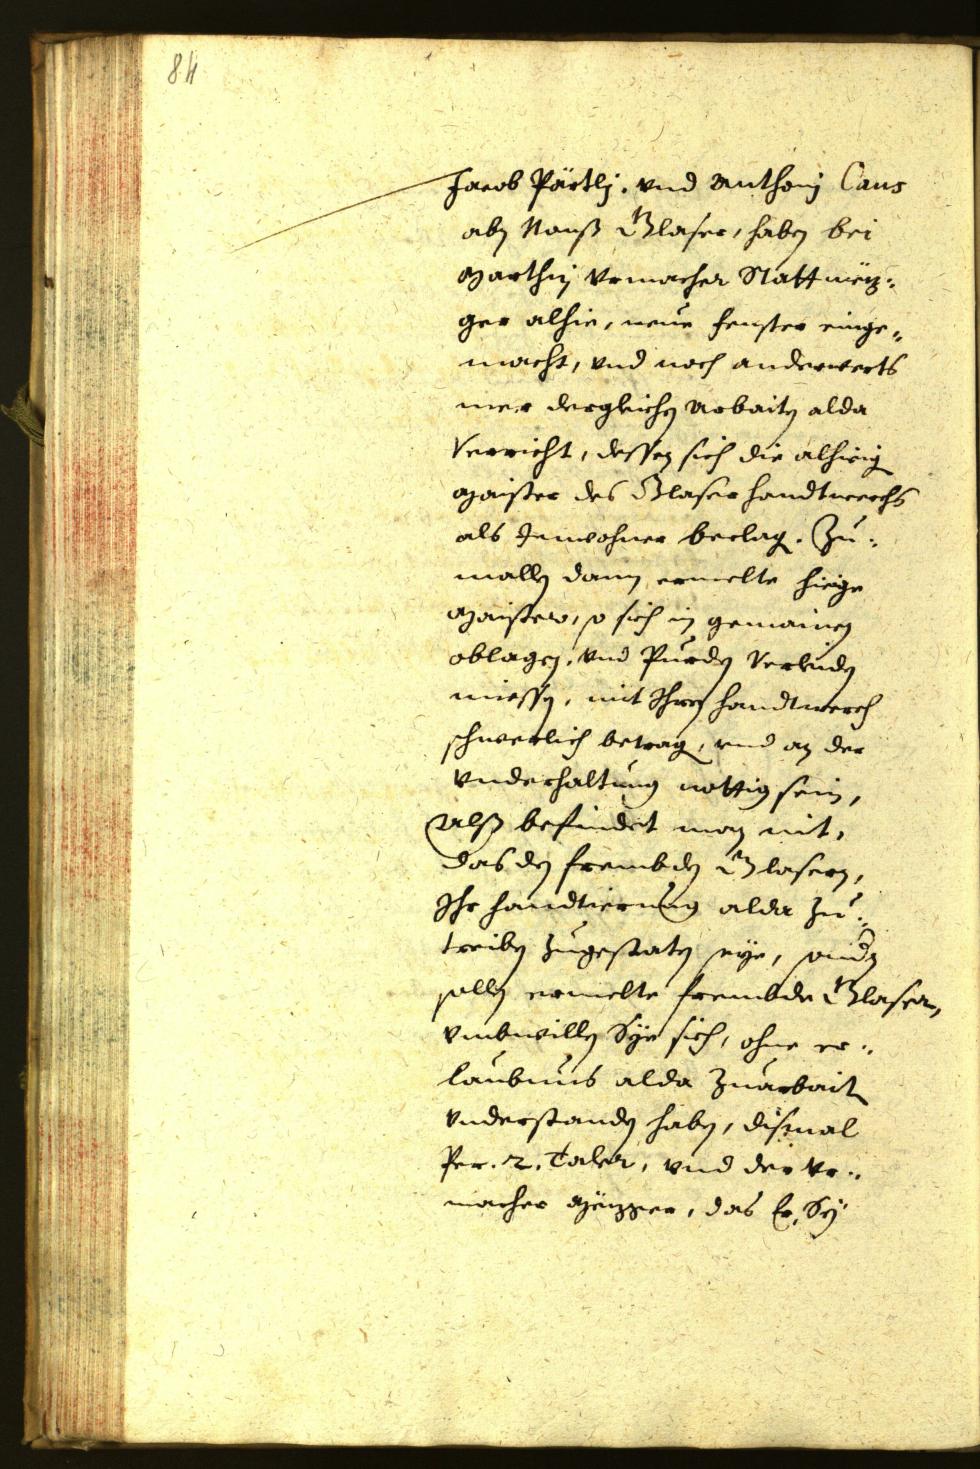 84
Jacob Pärtlj. vnd Anthonj Caus
abm Nonß Glaser, haben bei
Marthin Vrmacher Statt mëz¬
ger alhie, neue fenster einge¬
macht, vnd noch anderwerts
mer dergleichen Arbaiten alda
Verricht, dessen sich die alhieig
Maister des Glaser handtwerchs
als Inwohner beclag. Zu¬
mallen dann ermelte hieige
Maister, so sich in gemainen
oblagen, vnd Purden Verbinden
miessen, mit Ihren handtwerch
schwerlich betrag, vnd an der
Vnderhaltung nottig sein,
Alß befindet man nit,
das den frembden Glasern,
Ihr handtierung alda zu¬
treiben zugestaten seye, sonder
sollen ermelte frembde Glaser,
vmbwillen Sye sich, ohne er¬
laubnus alda zuarbait
vnderstanden haben, dismal
Per. 2. Taler, vnd der Vr¬
macher Mëzger, das Er, Sÿ